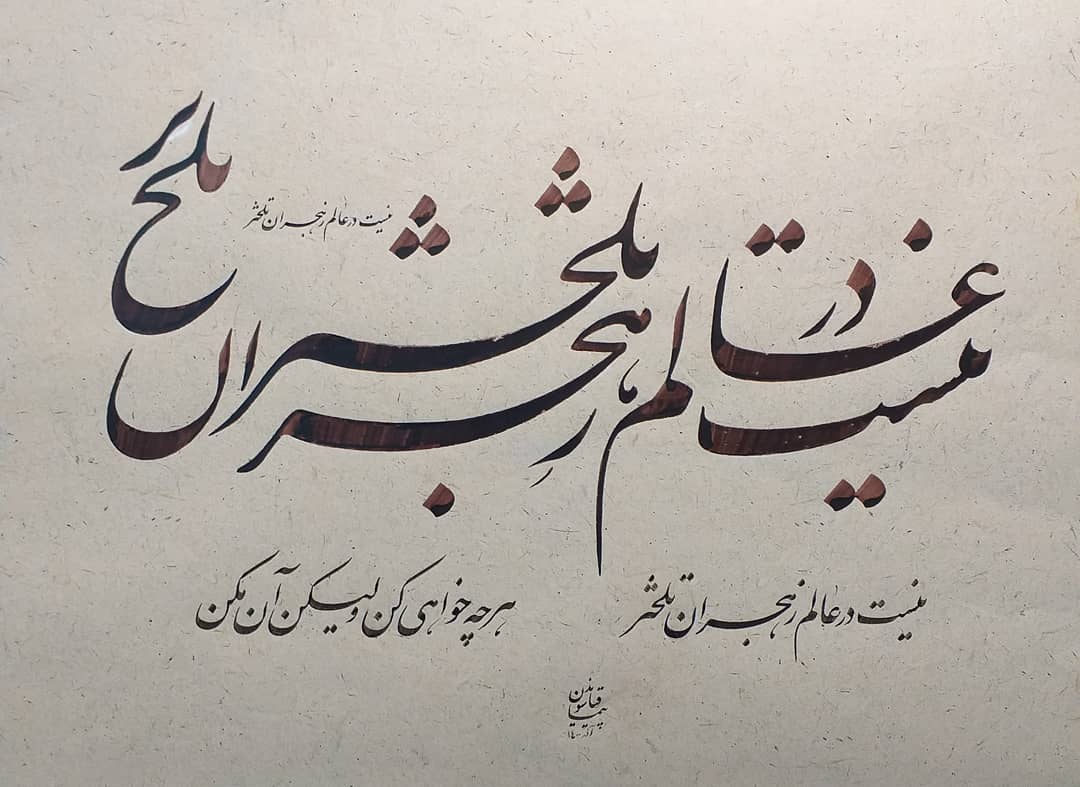 نیست در عالم ز هجران تلختر
نیست در عالم ز هجران تلختر
نیست در عالم ز هجران تلختر
هر چه خواهی کن ولیکن آن مکن